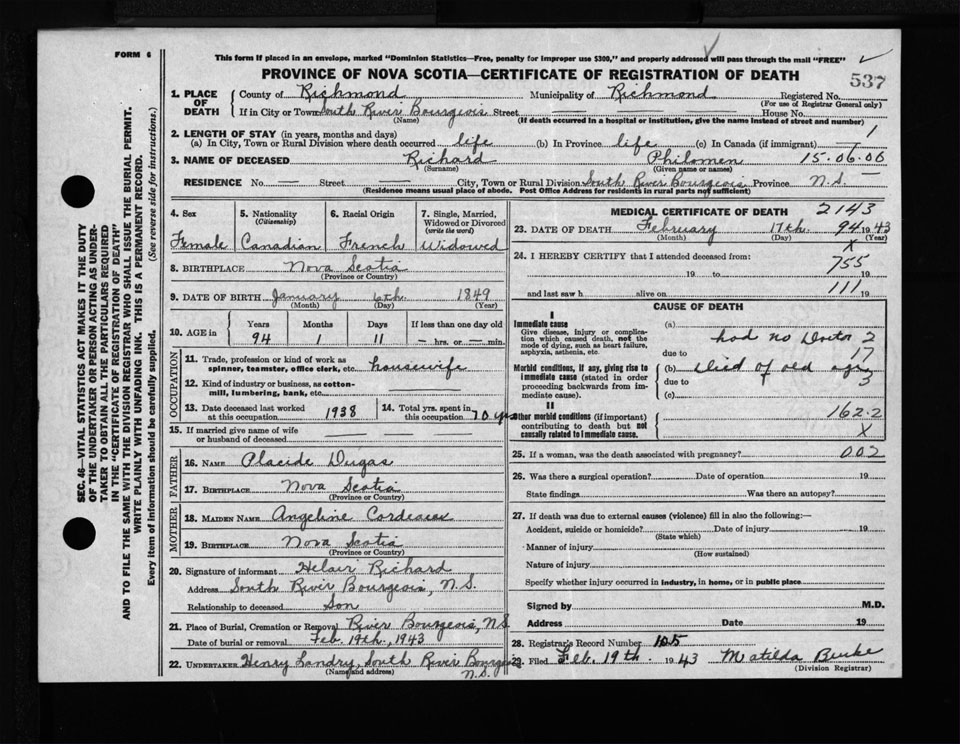 FORM 6
This form if placed in an envelope, marked "Dominion Statistics—Free, penalty for improper use $300," and properly addressed will pass through the mail "FREE"
PROVINCE OF NOVA SCOTIA—CERTIFICATE OF REGISTRATION OF DEATH
537
1. PLACE OF DEATH
County of Richmond Municipality of Richmond Registered No.
(For use of Registrar General only)
If in City or Town South River Bourgeois Street House No.
(Name) (If death occurred in a hospital or institution, give the name instead of street and number)
2. LENGTH OF STAY (in years, months and days) 1
(a) In City, Town or Rural Division where death occurred life (b) In Province life (c) In Canada (if immigrant) —
3. NAME OF DECEASED Richard Philomen 15-06-06
(Surname) (Given name or names)
RESIDENCE No. — Street City, Town or Rural Division South River Bourgeois Province N.S.
(Residence means usual place of abode. Post Office Address for residents in rural parts not sufficient)
4. Sex
Female
5. Nationality
(Citizenship)
Canadian
6. Racial Origin
French
7. Single, Married, Widowed or Divorced
(write the word)
Widowed
8. BIRTHPLACE Nova Scotia
(Province or Country)
9. DATE OF BIRTH January 6th 1849
(Month) (Day) (Year)
10. AGE in
Years Months Days If less than one day old
94 1 11 — hrs. or — min.
OCCUPATION
11. Trade, profession or kind of work as spinner, teamster, office clerk, etc. housewife
12. Kind of industry or business, as cotton-mill, lumbering, bank, etc. —
13. Date deceased last worked at this occupation 1938
14. Total yrs. spent in this occupation 70 yrs
15. If married give name of wife or husband of deceased — —
FATHER
16. NAME Placide Dugas
17. BIRTHPLACE Nova Scotia
(Province or Country)
MOTHER
18. MAIDEN NAME Angeline Cordeaux
19. BIRTHPLACE Nova Scotia
(Province or Country)
20. Signature of informant Helair Richard
Address South River Bourgeois, N.S.
Relationship to deceased Son
21. Place of Burial, Cremation or Removal River Bourgeois, N.S
Date of burial or removal Feb. 19th, 1943
22. UNDERTAKER Henry Landry, South River Bourgeois
(Name and address) N.S.
MEDICAL CERTIFICATE OF DEATH 2143
23. DATE OF DEATH February 17th. 94 1943
(Month) (Day) (Year)
24. I HEREBY CERTIFY that I attended deceased from: X
755
19 to 19
111
and last saw h alive on 19
CAUSE OF DEATH
I
Immediate cause
Give disease, injury or complication which caused death, not the mode of dying, such as heart failure, asphyxia, asthenia, etc.
(a) had no Doctor 2
due to 17
Morbid conditions, if any, giving rise to immediate cause (stated in order proceeding backwards from immediate cause).
(b) Died of old age
due to 3
(c)
II
Other morbid conditions (if important) contributing to death but not causally related to immediate cause.
162.2
X
25. If a woman, was the death associated with pregnancy? 002
26. Was there a surgical operation? Date of operation 19
State findings Was there an autopsy?
27. If death was due to external causes (violence) fill in also the following:—
Accident, suicide or homicide? Date of injury 19
(State which)
Manner of injury
(How sustained)
Nature of injury
Specify whether injury occurred in industry, in home, or in public place
Signed by M.D.
Address Date 19
28. Registrar's Record Number 105
29. Filed Feb. 19th 1943 Matilda Burke
(Division Registrar)
SEC. 46—VITAL STATISTICS ACT MAKES IT THE DUTY
OF THE UNDERTAKER OR PERSON ACTING AS UNDERTAKER TO OBTAIN ALL THE PARTICULARS REQUIRED
IN THE "CERTIFICATE OF REGISTRATION OF DEATH"
AND TO FILE THE SAME WITH THE DIVISION REGISTRAR WHO SHALL ISSUE THE BURIAL PERMIT.
WRITE PLAINLY WITH UNFADING INK. THIS IS A PERMANENT RECORD.
Every item of information should be carefully supplied. (See reverse side for instructions.)